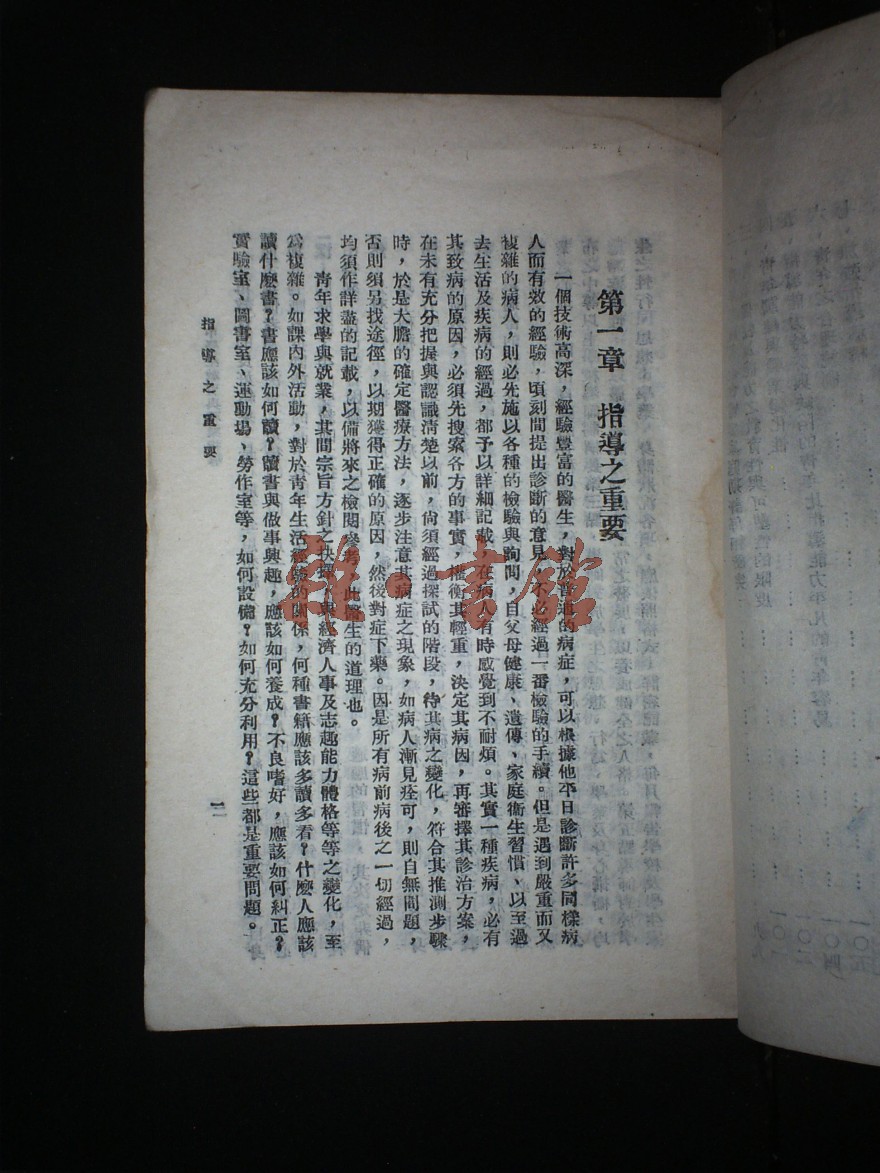 第一章　指導之重要
一個技術高深，經驗豐富的醫生，對於普通的病症，可以根據他平日診斷許多同樣病
人而有效的經驗，頃刻間提出診斷的意見，不必經過一番檢驗的手續。但是遇到嚴重而又
複雜的病人，則必先施以各種的檢驗與詢問，自父母健康、遺傳、家庭衞生習慣、以至過
去生活及疾病的經過，都予以詳細記載，在病人有時感覺到不耐煩。其實一種疾病，必有
其致病的原因，必須先搜索各方的事實，權衡其輕重，決定其病因，再審擇其診治方案，
在未有充分把握與認識清楚以前，尙須經過探試的階段，待其病之變化，符合其推測步驟
時，於是大膽的確定醫療方法，逐步注意其病症之現象，如病人漸見痊可，則自無問題，
否則須另找途徑，以期獲得正確的原因，然後對症下藥。因是所有病前病後之一切經過，
均須作詳盡的記載，以備將來之檢閱參考，此醫生的道理也。
靑年求學與就業，其間宗旨方針之抉擇，與經濟人事及志趣能力體格等等之變化，至
爲複雜。如課內外活動，對於靑年生活經驗的關係，何種書籍應該多讀多看？什麼人應該
讀什麼書？書應該如何讀？讀書與做事興趣，應該如何養成？不良嗜好，應該如何糾正？
實驗室、圖書室、運動場、勞作室等，如何設備？如何充分利用？這些都是重要問題。
指導之重要
雅書館